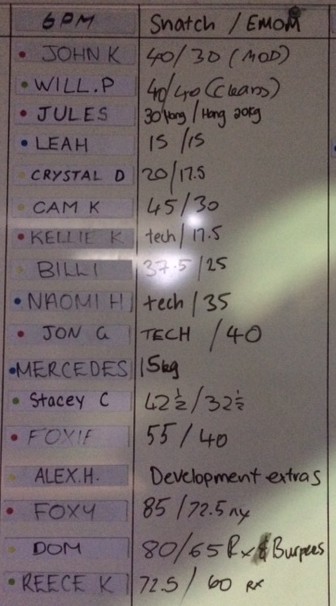 6PM Snatch / EMOM
JOHN K 40/30 (MOD)
WILL.P 40/40 (Cleans)
JULES 30 Hang / Hang 20kg
LEAH 15 /15
CRYSTAL D 20/17.5
CAM K 45/30
KELLIE K tech/17.5
BILLI 37.5/25
NAOMI H tech/35
JON G TECH /40
MERCEDES 15kg
Stacey C 42½/32½
FOXIE 55/40
ALEX.H. Development extras
FOXY 85/72.5 rx
DOM 80/65 Rx & Burpees
REECE K 72.5/60 RX